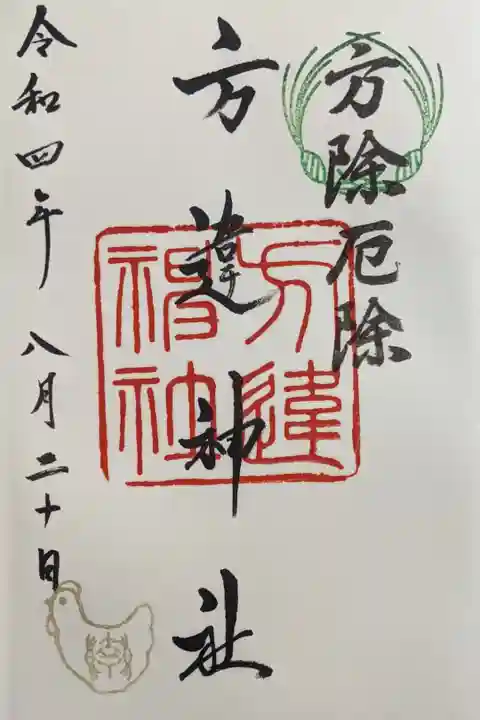 方除厄除
方違神社
方違
神社
令和四年 八月二十日